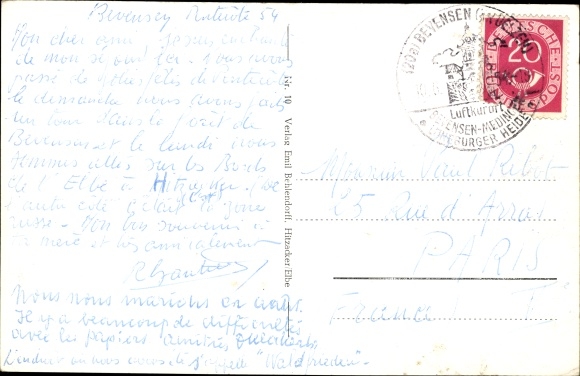 Bevensen Pentecôte 54
Mon cher ami je suis enchanté
de mon séjour ici. Nous avons
passé de jolies fêtes de Pentecôte
le dimanche nous avons fait
un tour dans la forêt de
Bevensen et le lundi nous
sommes allés sur les Bords
de l'Elbe à Hitzacker. De
l'autre côté c'était la zone
russe - Mon bon souvenir à
ta mère et bien amicalement
Nous nous marions en août.
Il y a beaucoup de difficultés
avec les papiers
L'endroit où nous avons été s'appelle "Waldfrieden"-
Nr. 10 Verlag Emil Behlendorff, Hitzacker/Elbe
(20a) BEVENSEN (UELZEN)
Luftkurort
BEVENSEN-MEDINGEN
LÜNEBURGER HEIDE
DEUTSCHE
20
BUNDESPOST
Monsieur Paul Ribot
25 Rue d'Arras
PARIS
France